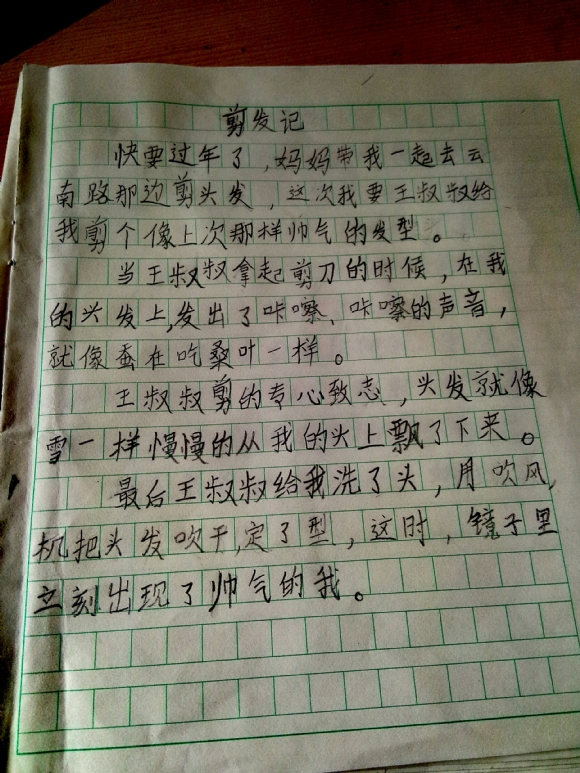 剪发记
快要过年了,妈妈带我一起去云
南路那边剪头发,这次我要王叔叔给
我剪个像上次那样帅气的发型。
当王叔叔拿起剪刀的时候,在我
的头发上,发出了咔嚓、咔嚓的声音,
就像蚕在吃桑叶一样。
王叔叔剪的专心致志,头发就像
雪一样慢慢的从我的头上飘了下来。
最后王叔叔给我洗了头,月吹风,
机把头发吹干,定了型,这时,镜子里
立刻出现了帅气的我。